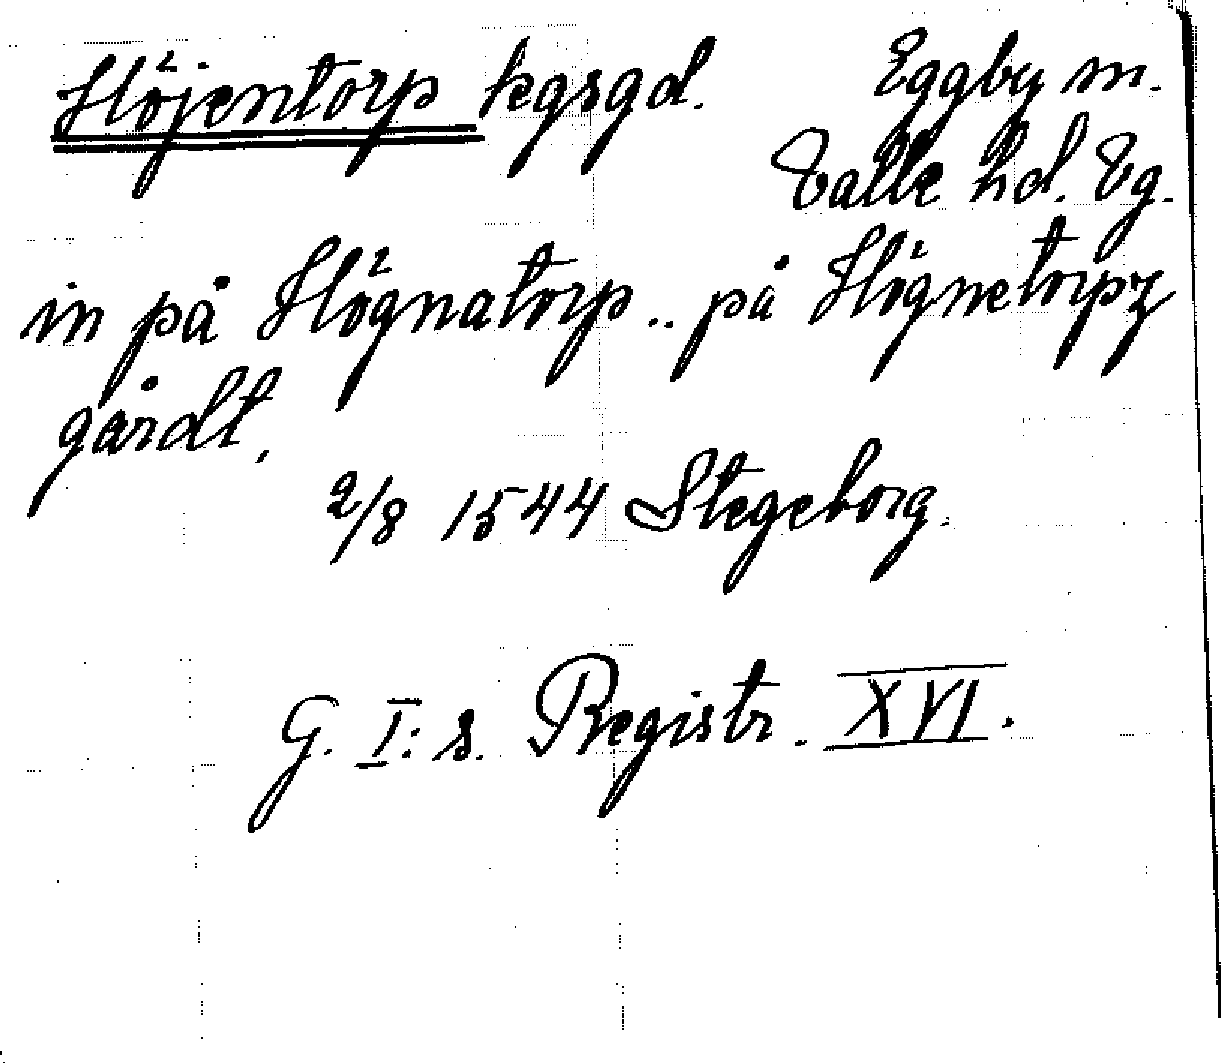 Höjentorp kgsgd. Eggby sn.
Valle hd. Vg.
in på Högnatorp .. på Högnetorpz
gårdt,
2/8 1544 Stegeborg.
G. I:s. Registr. XVI.